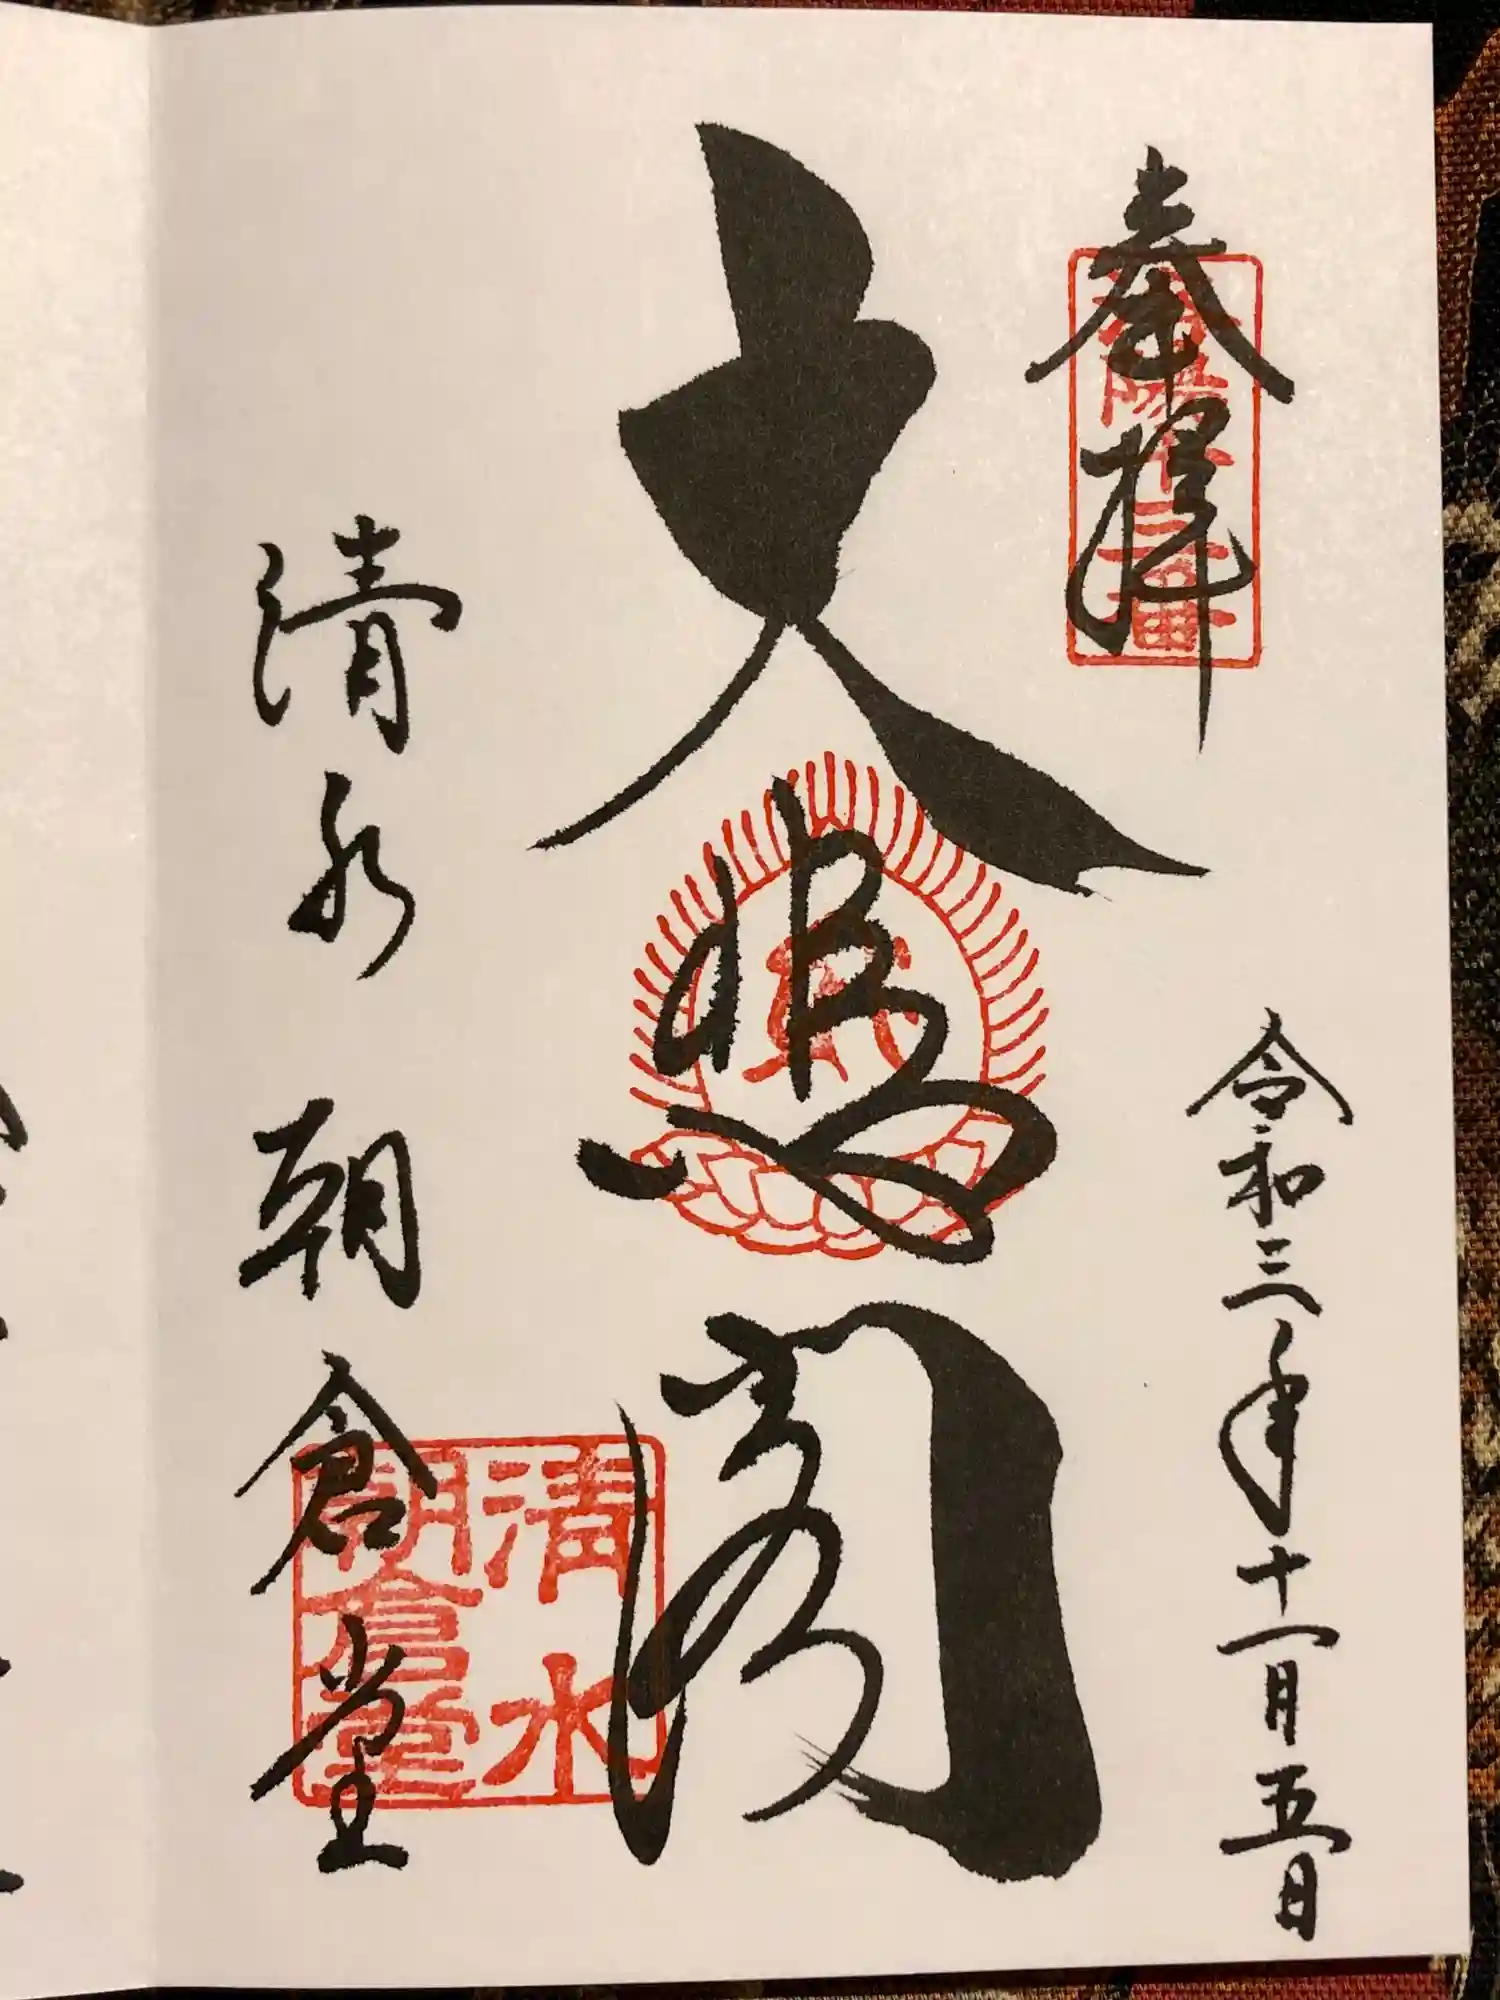 奉拝
洛陽十三番
令和三年十一月五日
大悲閣
清水
朝倉堂
清水 朝倉堂